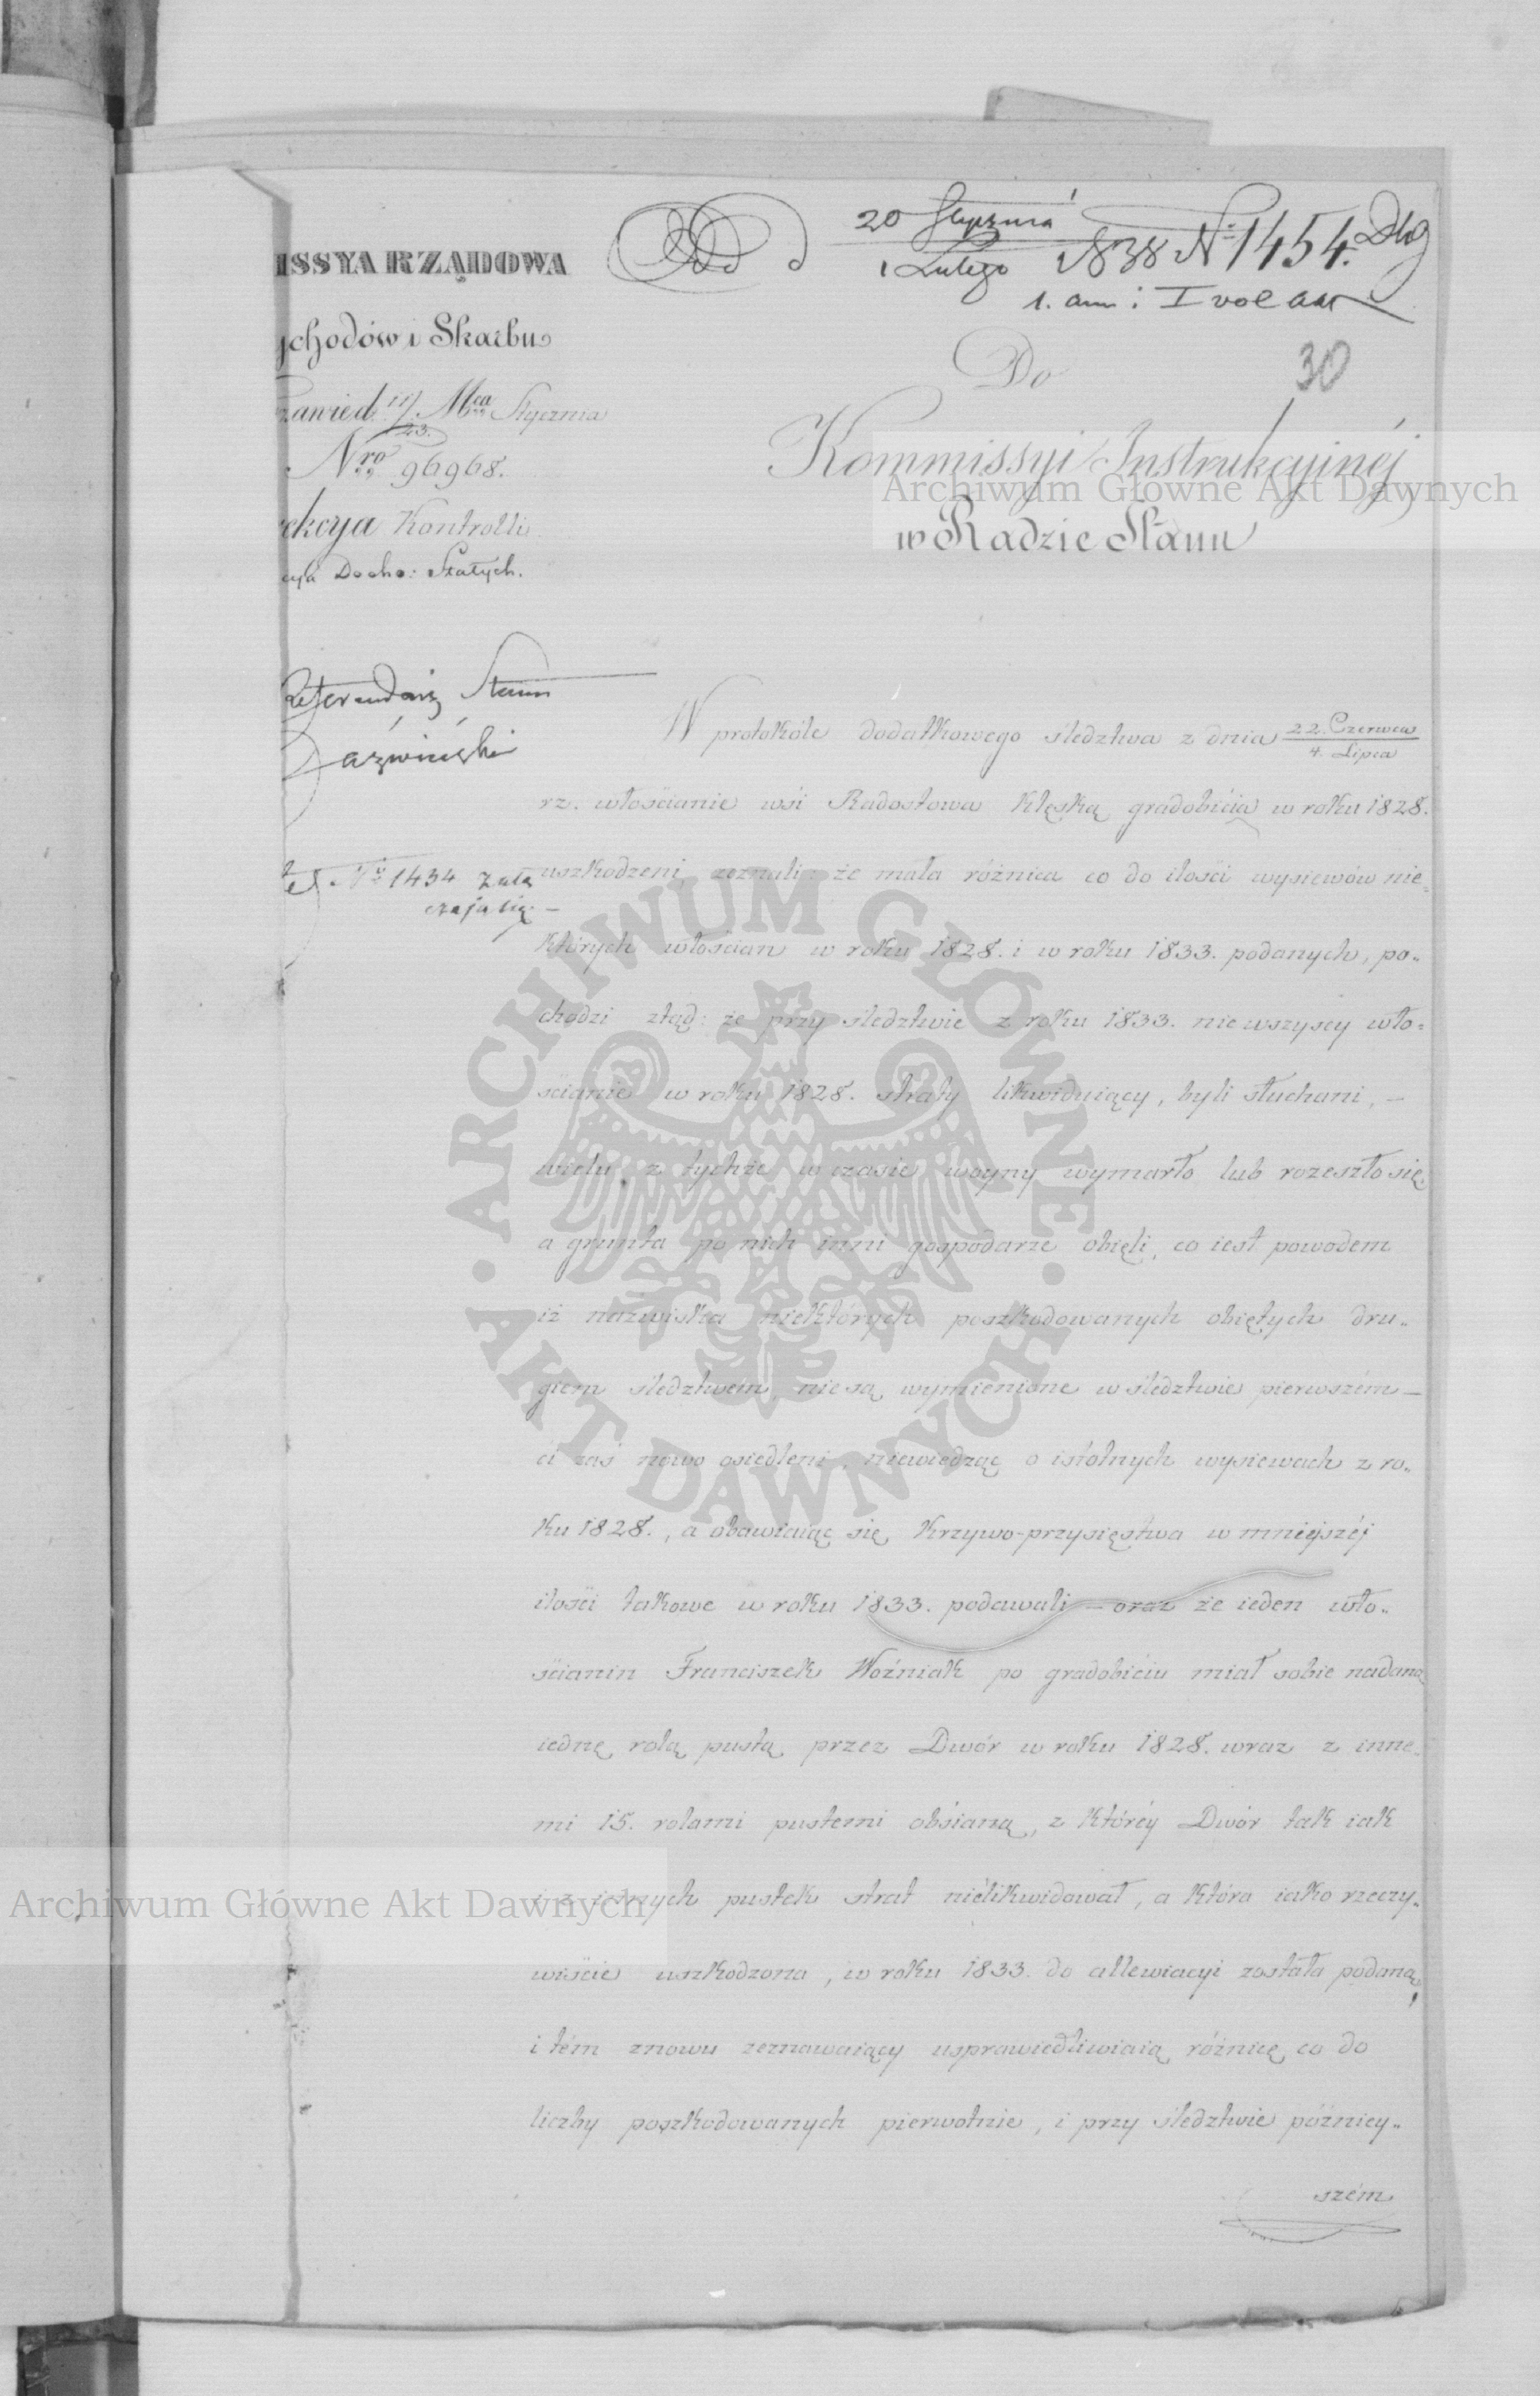 20 Stycznia
1 Lutego 1838 Nº 1454. Dhg
1. ann: I vol akt
30
ISSYA RZĄDOWA
chodów i Skarbu
11/23. Mca Stycznia
Nro 96968.
ekcya Kontrolli
cya Docho: Stałych.
Do
Kommissyi Instrukcyinéj
w Radzie Stanu
Referendarz Stanu
Nº 1434 załą
czają się. —
W protokóle dodatkowego śledztwa z dnia 22. Czerwca / 4. Lipca
rz. włościanie wsi Radostowa klęską gradobicia w roku 1828.
uszkodzeni, zeznali: że mała różnica co do ilości wysiewów nie-
których włościan w roku 1828. i w roku 1833. podanych, po-
chodzi ztąd: że przy śledztwie z roku 1833. nie wszyscy wło-
ścianie w roku 1828. straty likwiduiący, byli słuchani, —
wielu z tychże w czasie woyny wymarło lub rozeszło się
a grunta po nich inni gospodarze obięli, co iest powodem
iż nazwiska niektórych poszkodowanych obiętych dru-
giem śledztwem, nie są wymienione w śledztwie pierwszém —
ci zaś nowo osiedleni, niewiedząc o istotnych wysiewach z ro-
ku 1828., a obawiaiąc się krzywo-przysięstwa w mniejszéj
ilości takowe w roku 1833. podawali — oraz że ieden wło-
ścianin Franciszek Woźniak po gradobiciu miał sobie nadaną
iednę rolą pustą przez Dwór w roku 1828. wraz z inne-
mi 15. rolami pustemi obsianą, z któréy Dwór tak iak
i z innych pustek strat nielikwidował, a która iako rzeczy-
wiście uszkodzona, w roku 1833. do allewiacyi została podaną,
i tém znowu zeznawaiący usprawiedliwiaią różnicę co do
liczby poszkodowanych pierwotnie, i przy śledztwie późniey-
szém
Archiwum Główne Akt Dawnych
Archiwum Główne Akt Dawnych
ARCHIWUM GŁÓWNE
AKT DAWNYCH